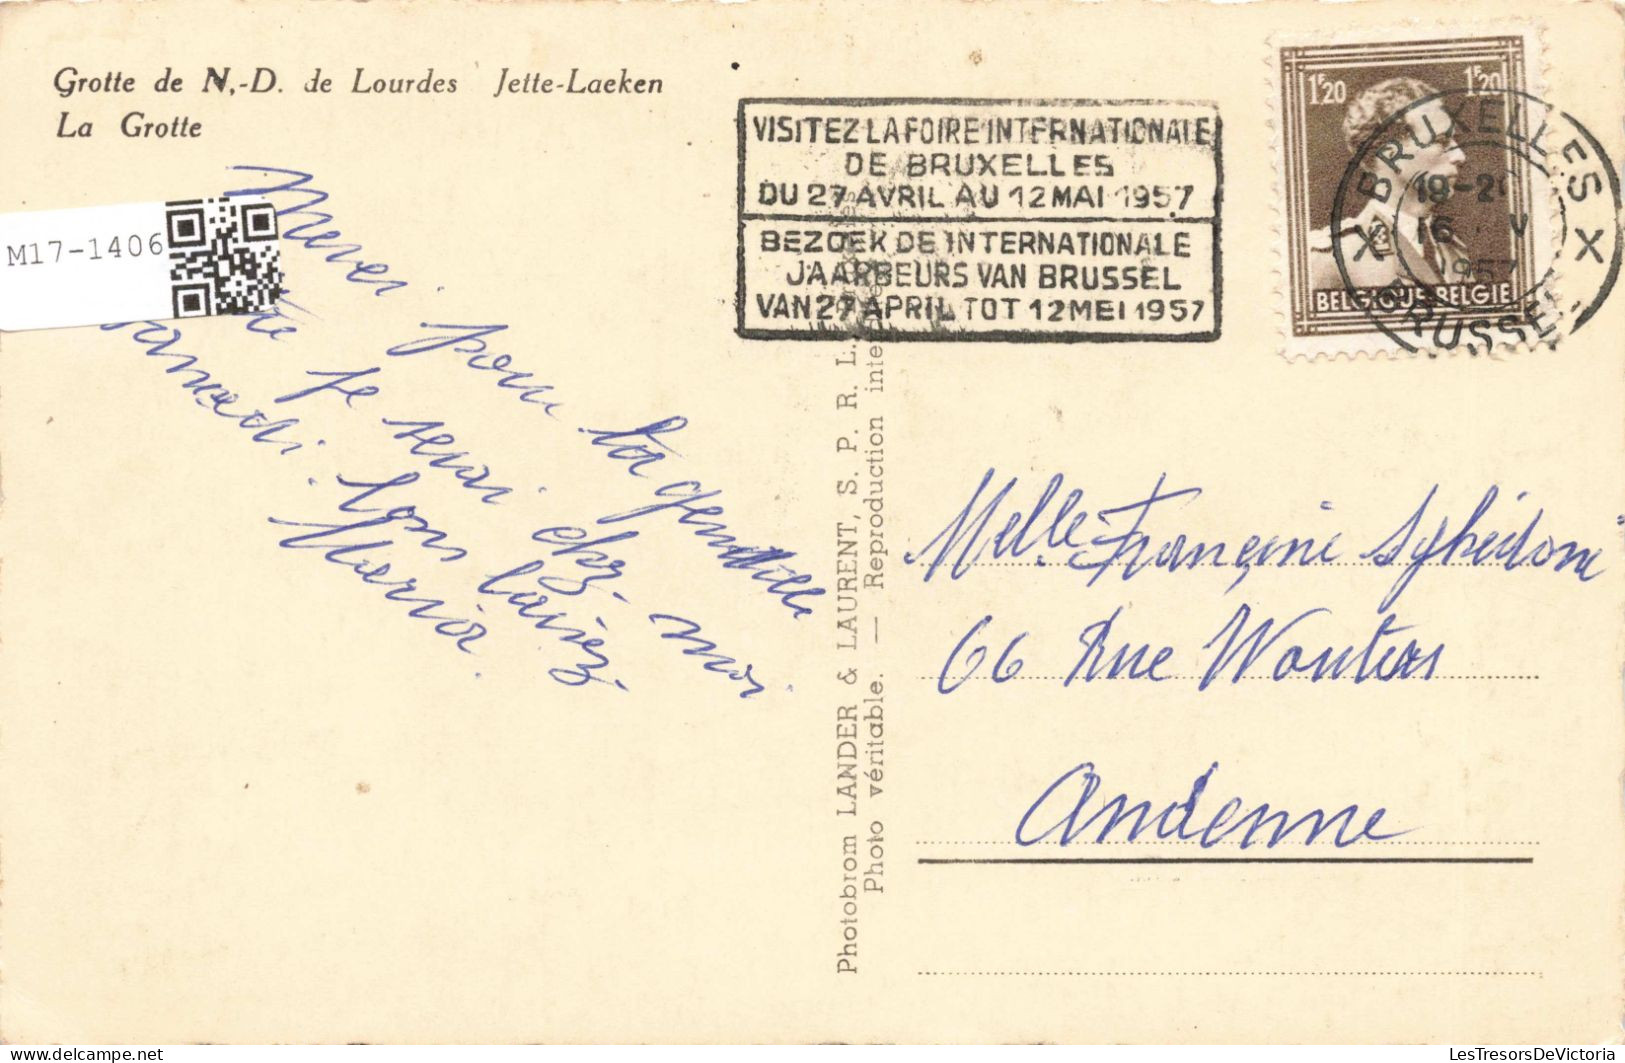 Grotte de N.-D. de Lourdes Jette-Laeken
La Grotte
M17-1406
Merci pour la gentille
je serai chez moi
samedi. bons baisers
Maria.
VISITEZ LA FOIRE INTERNATIONALE
DE BRUXELLES
DU 27 AVRIL AU 12 MAI 1957
BEZOEK DE INTERNATIONALE
JAARBEURS VAN BRUSSEL
VAN 27 APRIL TOT 12 MEI 1957
1F20 1F20
BELGIQUE-BELGIE
X BRUXELLES X
16 V
1957
BRUSSEL
Photobrom LANDER & LAURENT, S. P. R. L.
Photo véritable. — Reproduction
Melle Françine
66 Rue Wouters
Andenne
LesTresorsDeVictoria